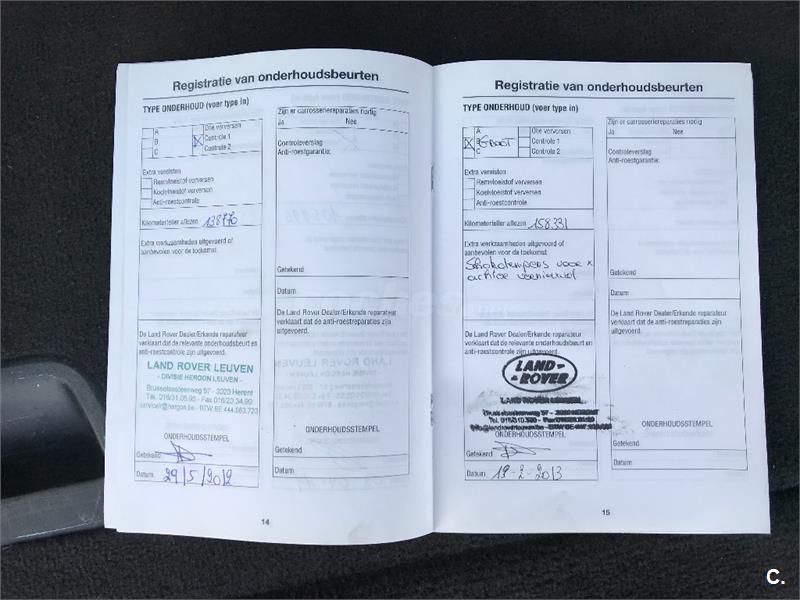 Registratie van onderhoudsbeurten
TYPE ONDERHOUD (voer type in)
A
B
C
Olie verversen
X Controle 1
Controle 2
Extra vereisten
Remvloeistof verversen
Koelvloeistof verversen
Anti-roestcontrole
Kilometerteller aflezen 138770
Extra werkzaamheden uitgevoerd of
aanbevolen voor de toekomst
De Land Rover Dealer/Erkende reparateur
verklaart dat de relevante onderhoudsbeurt en
anti-roestcontrole zijn uitgevoerd.
LAND ROVER LEUVEN
- DIVISIE HERGON LEUVEN -
Brusselsesteenweg 57 - 3020 Herent
Tel. 016/31.05.90 - Fax 016/23.34.90
BTW BE 444.663.723
ONDERHOUDSSTEMPEL
Getekend
Datum 29/5/2012
Zijn er carrosseriereparaties nodig
Ja Nee
Controleverslag
Anti-roestgarantie:
Getekend
Datum
De Land Rover Dealer/Erkende reparateur
verklaart dat de anti-roestreparaties zijn
uitgevoerd.
ONDERHOUDSSTEMPEL
Getekend
Datum
14
Registratie van onderhoudsbeurten
TYPE ONDERHOUD (voer type in)
A
X B GROOT
C
Olie verversen
Controle 1
Controle 2
Extra vereisten
Remvloeistof verversen
Koelvloeistof verversen
Anti-roestcontrole
Kilometerteller aflezen 158331
Extra werkzaamheden uitgevoerd of
aanbevolen voor de toekomst
Schokdempers voor x
achter vernieuwd
De Land Rover Dealer/Erkende reparateur
verklaart dat de relevante onderhoudsbeurt en
anti-roestcontrole zijn uitgevoerd.
LAND-
-ROVER
LAND ROVER LEUVEN
Brusselsesteenweg 57 - 3020 HERENT
ONDERHOUDSSTEMPEL
Getekend
Datum 19-2-2013
Zijn er carrosseriereparaties nodig
Ja Nee
Controleverslag
Anti-roestgarantie:
Getekend
Datum
De Land Rover Dealer/Erkende reparateur
verklaart dat de anti-roestreparaties zijn
uitgevoerd.
ONDERHOUDSSTEMPEL
Getekend
Datum
15
C.